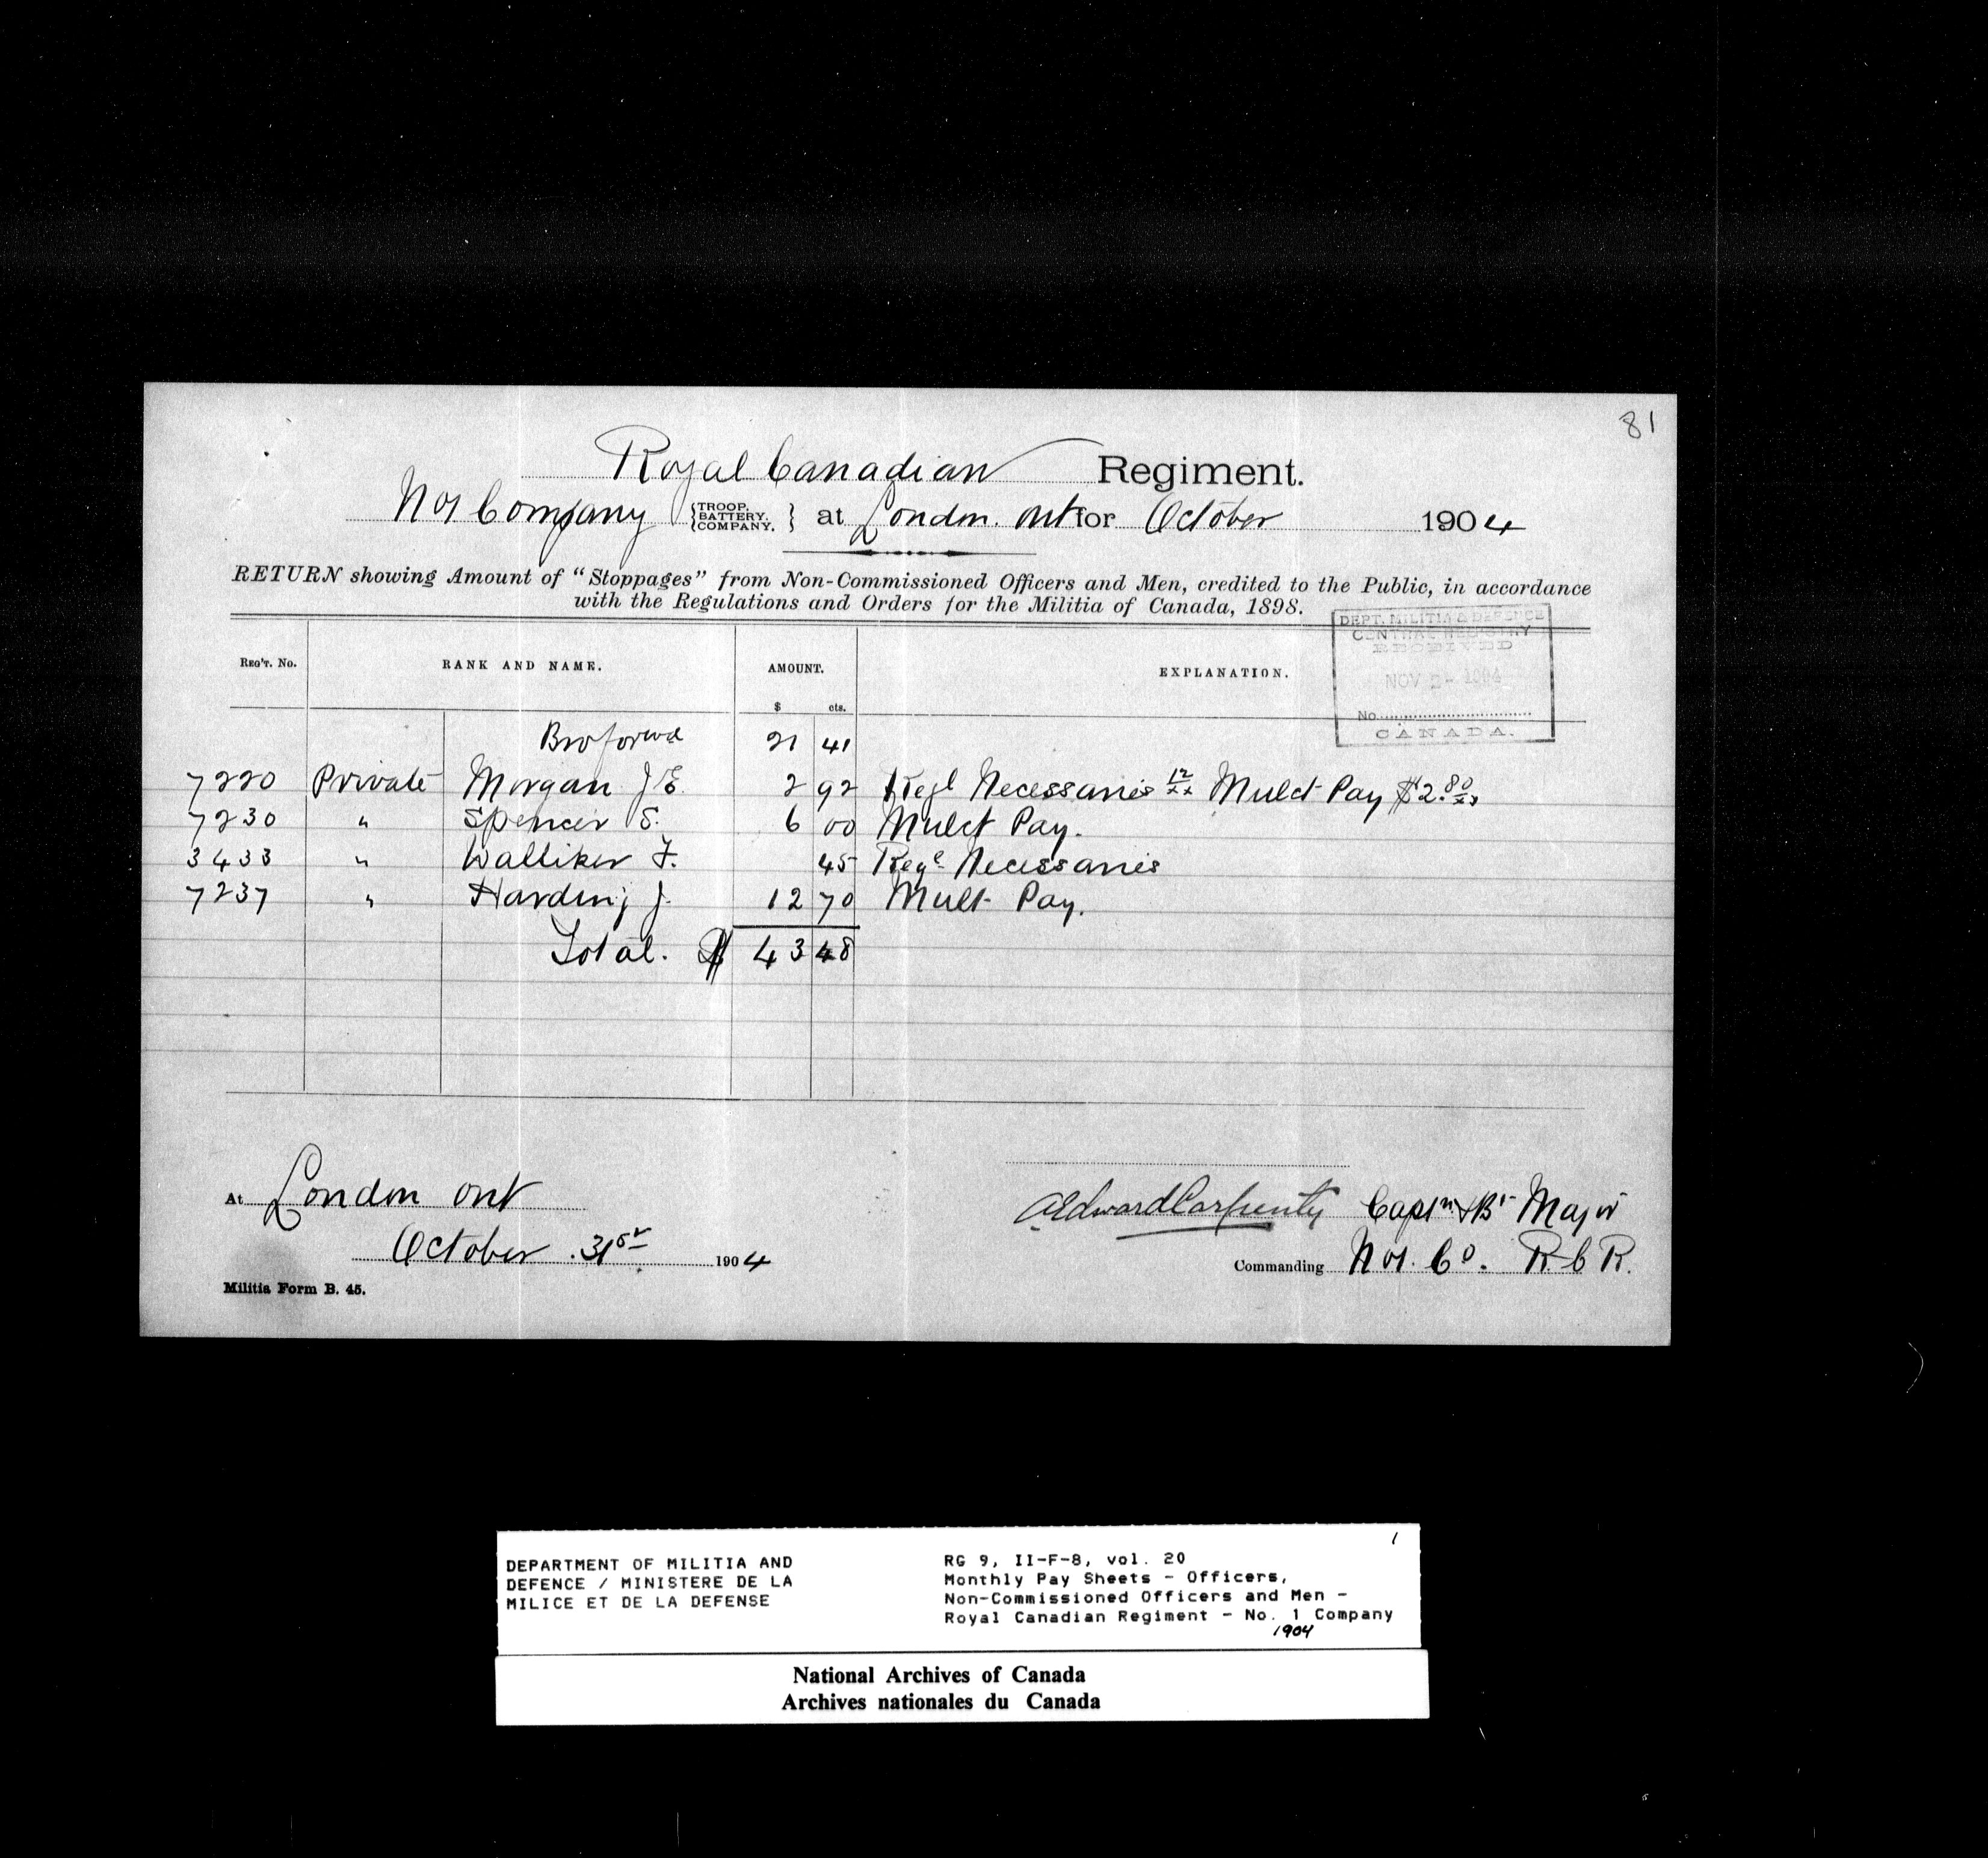 81
Royal Canadian Regiment.
No 1 Company {TROOP, BATTERY, COMPANY,} at London. Ont for October 1904
RETURN showing Amount of "Stoppages" from Non-Commissioned Officers and Men, credited to the Public, in accordance
with the Regulations and Orders for the Militia of Canada, 1898.
DEPT. MILITIA & DEFENCE
CENTRAL REGISTRY
RECEIVED
NOV 2- 1904
No.
CANADA.
REG'T. No. RANK AND NAME. AMOUNT. EXPLANATION.
$ cts.
Bro forwd 21 41
7220 Private Morgan J E. 2 92 Regl Necessaries 12/xx Mulct Pay $2.80/xx
7230 " Spencer S. 6 00 Mulct Pay.
3433 " Walliker F. 45 Regl Necessaries
7237 " Harding J. 12 70 Mult Pay.
Total. $ 43 48
At London Ont
October 31st 1904
A Edward Carpenter Captn & Bt Major
Commanding No 1. Co. R C R.
Militia Form B. 45.
1
DEPARTMENT OF MILITIA AND
DEFENCE / MINISTERE DE LA
MILICE ET DE LA DEFENSE
RG 9, II-F-8, vol. 20
Monthly Pay Sheets - Officers,
Non-Commissioned Officers and Men -
Royal Canadian Regiment - No. 1 Company
1904
National Archives of Canada
Archives nationales du Canada